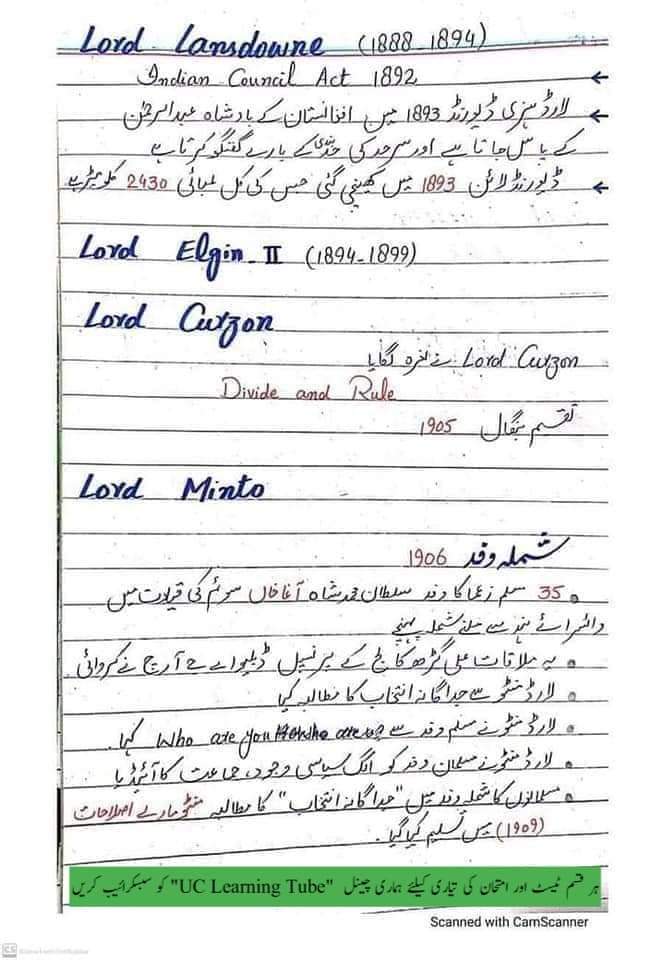 Lord Lansdowne (1888-1894)
Indian Council Act 1892 ←
← لارڈ ہنری ڈیورنڈ 1893 میں افغانستان کے بادشاہ عبدالرحمٰن
کے پاس جاتا ہے اور سرحد کی حد بندی کے بارے گفتگو کرتا ہے
← ڈیورنڈ لائن 1893 میں کھینچی گئی جس کی کل لمبائی 2430 کلومیٹر ہے
Lord Elgin-II (1894-1899)
Lord Curzon
Lord Curzon نے نعرہ لگایا
Divide and Rule
تقسیم بنگال 1905
Lord Minto
شملہ وفد 1906
• 35 مسلم زعما کا وفد سلطان محمد شاہ آغا خان سوئم کی قیادت میں
وائسرائے ہند سے ملنے شملہ پہنچے
• یہ ملاقات علی گڑھ کالج کے پرنسپل ڈبلیو اے جے آرچ نے کروائی
• لارڈ منٹو سے جداگانہ انتخاب کا مطالبہ کیا
• لارڈ منٹو نے مسلم وفد سے Who are you کہا.
• لارڈ منٹو نے مسلمان وفد کو الگ سیاسی وجود، جماعت کا آئیڈیا دیا
• مسلمانوں کا شملہ وفد میں "جداگانہ انتخاب" کا مطالبہ منٹو مارلے اصلاحات
(1909) میں تسلیم کیا گیا.
ہر قسم ٹیسٹ اور امتحان کی تیاری کیلئے ہماری چینل "UC Learning Tube" کو سبسکرائیب کریں
Scanned with CamScanner
CS Scanned with CamScanner